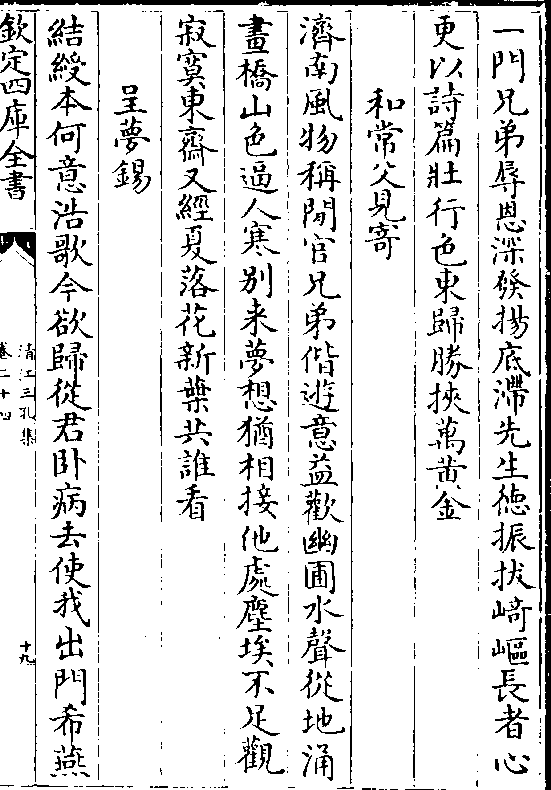 一門兄弟辱恩深發揚底滯先生徳振㧞﨑嶇長者心
更以詩篇壯行色東歸勝挾萬黄金
和常父見寄
濟南風物稱閒官兄弟偕遊意益歡幽圃水聲從地涌
畫橋山色逼人寒别来夢想猶相接他處塵埃不足觀
寂寞東齋又經夏落花新葉共誰看
呈夢錫
結綬本何意浩歌今欲歸從君卧病去使我出門希燕
欽定四庫全書
清江三孔集
卷二十四
十九